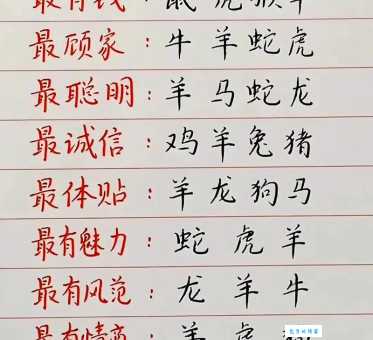 最有钱：鼠 虎 猴 羊
最顾家：牛 羊 蛇 虎
最聪明：羊 马 蛇 龙
最诚信：鸡 羊 兔 猪
最体贴：羊 龙 狗 马
最有魅力：蛇 虎 羊
最有风范：龙 羊 牛
最有情商：羊 虎